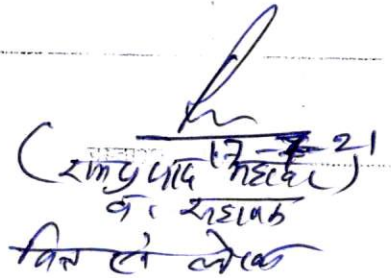 17-7-21
(रामप्रसाद महावर)
व. सहायक
वित्त एवं लेखा